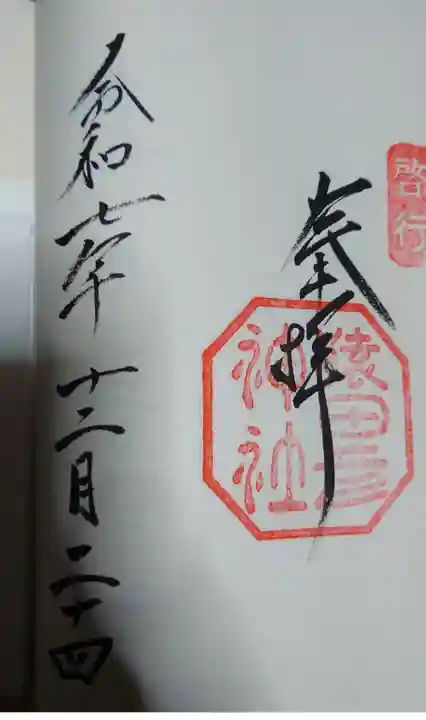 啓行
奉拝
猿田彦
神社
令和七年十二月二十四